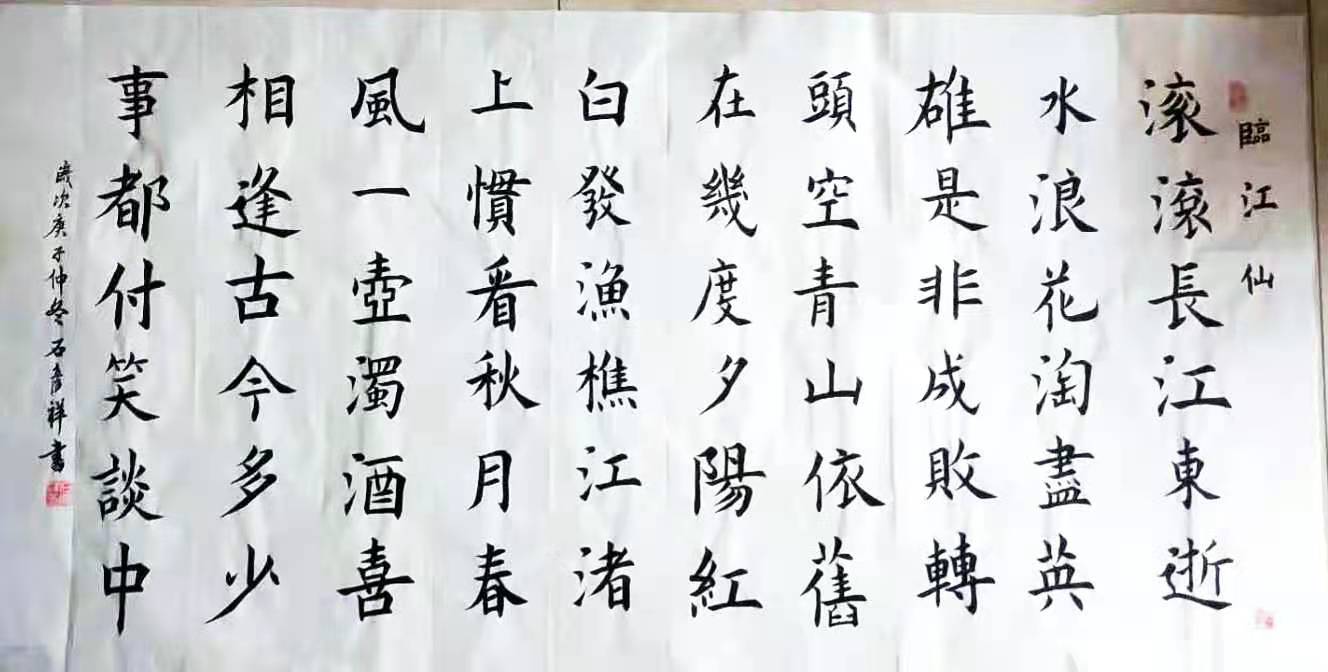 臨江仙
滚滚長江東逝
水浪花淘盡英
雄是非成敗轉
頭空青山依舊
在幾度夕陽紅
白發漁樵江渚
上慣看秋月春
風一壺濁酒喜
相逢古今多少
事都付笑談中
歲次庚子仲冬石彥祥書